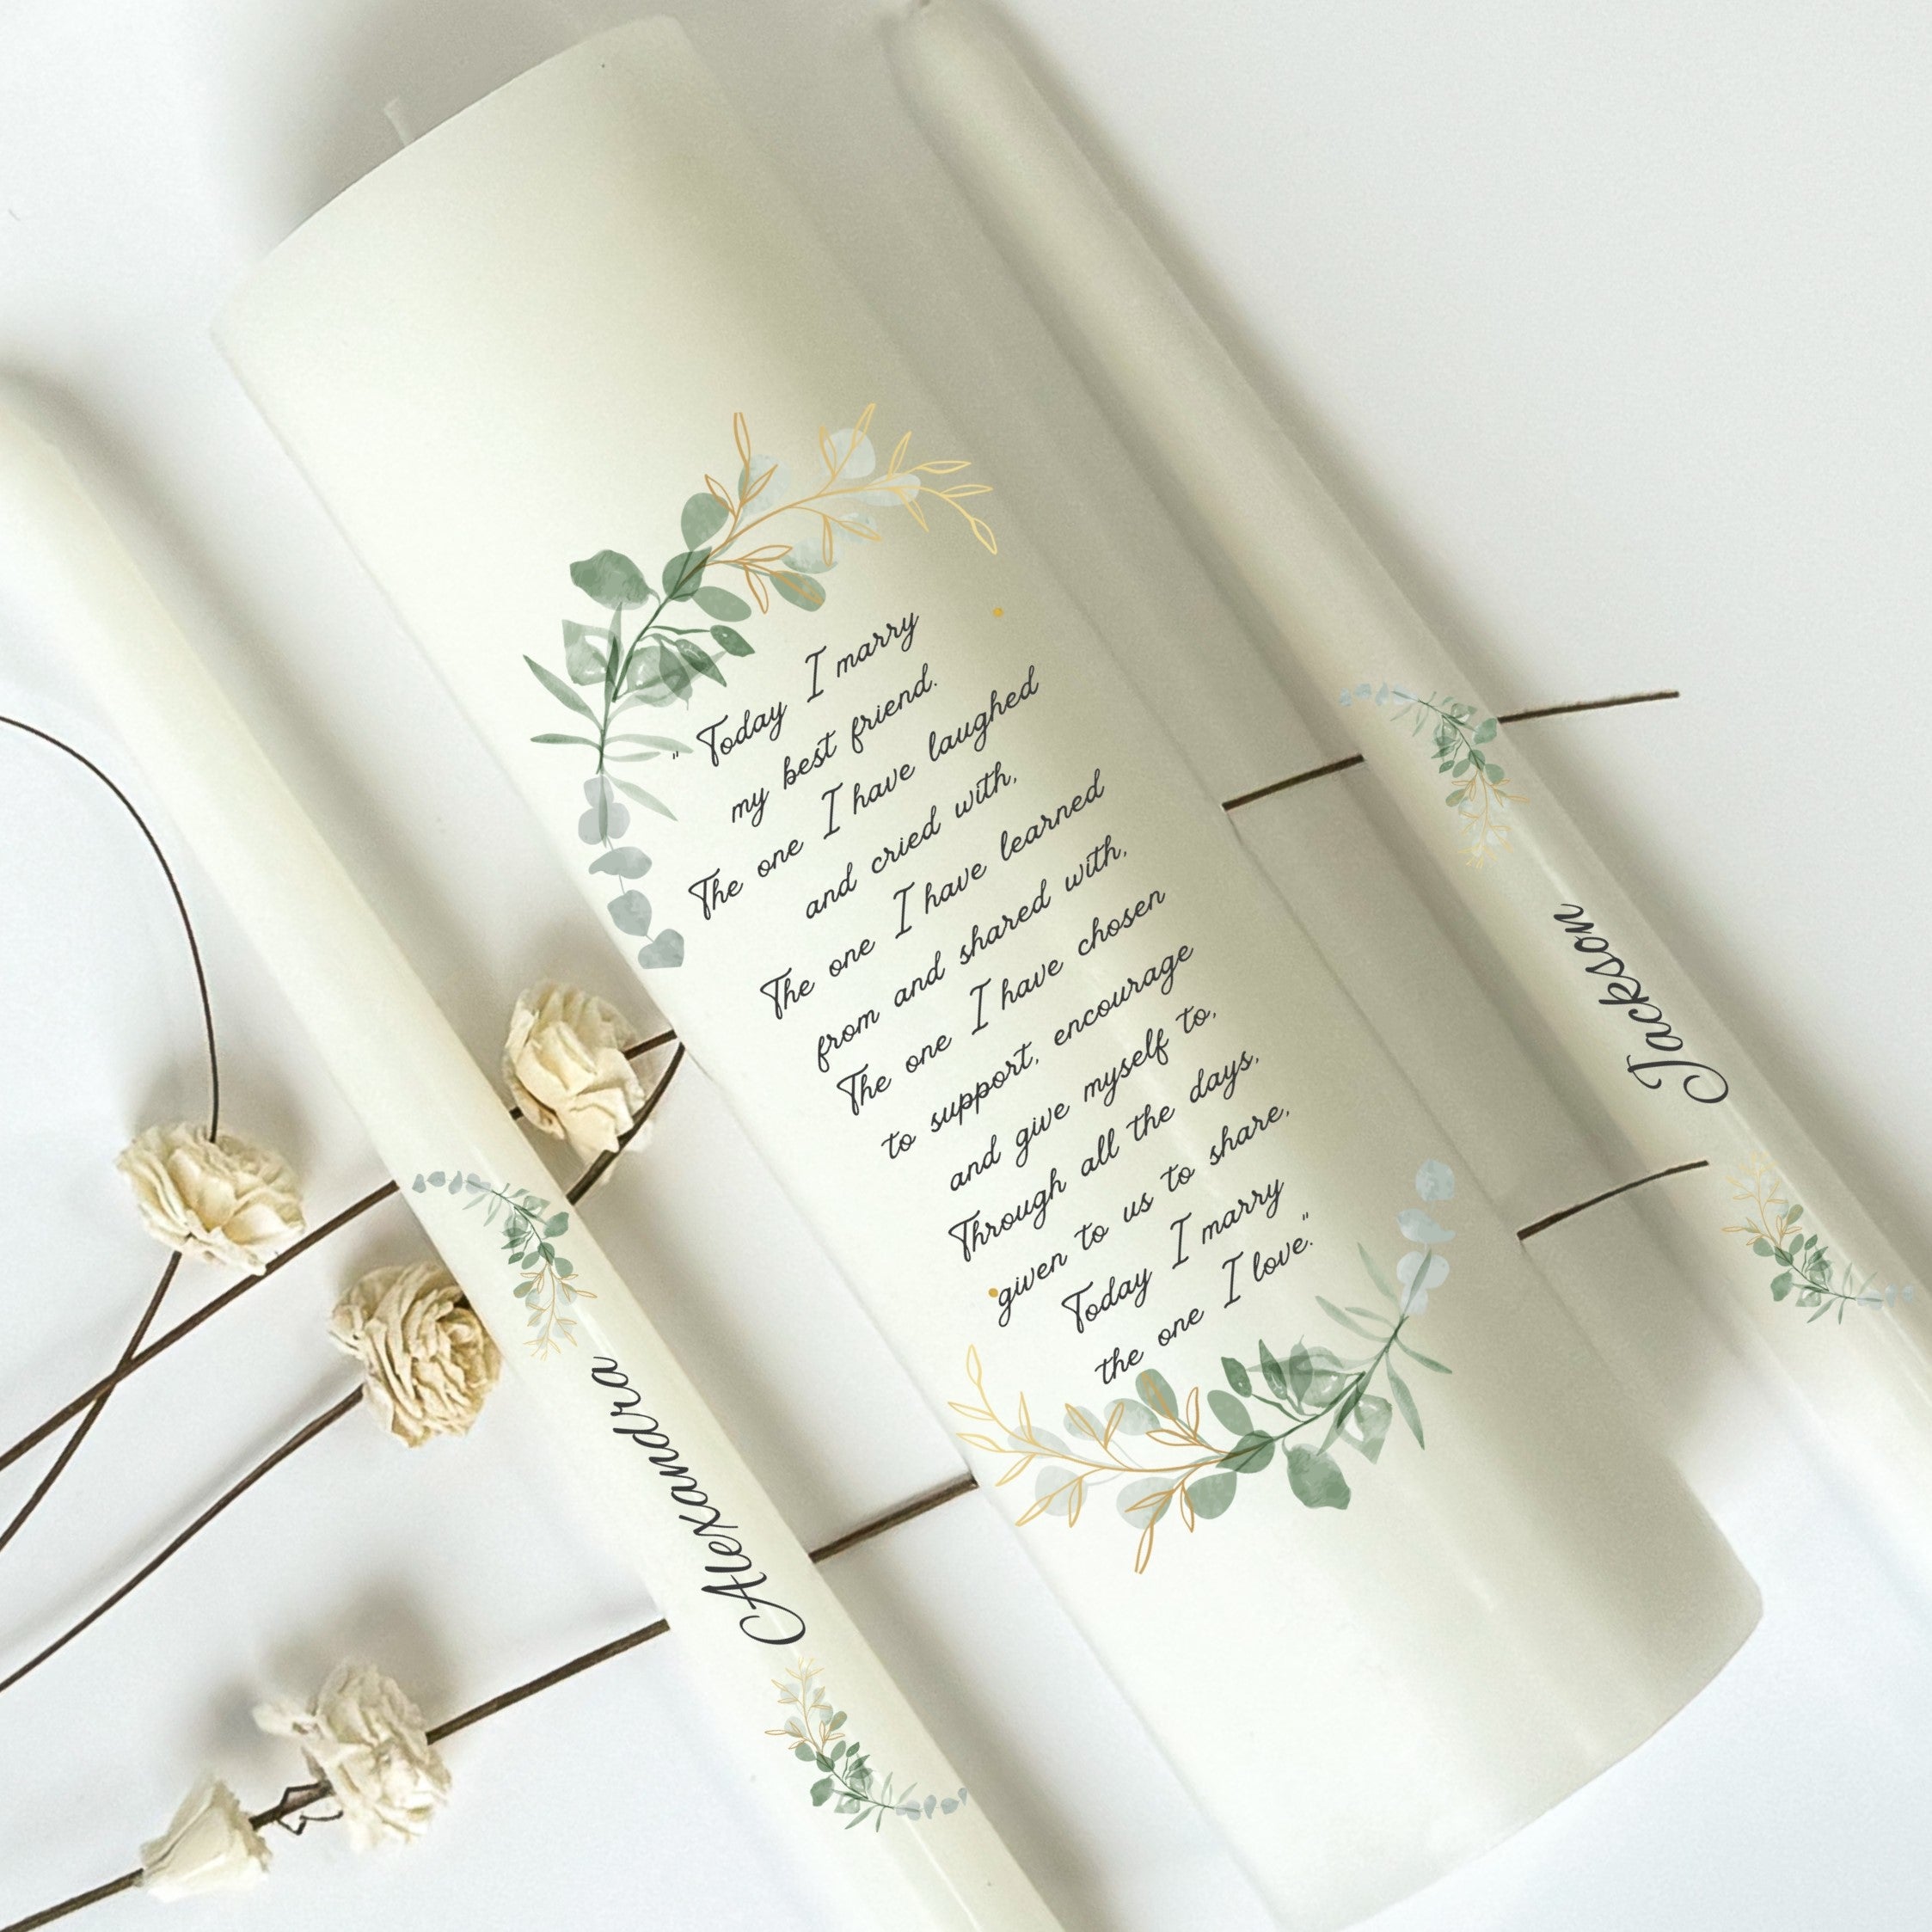 " Today I marry
my best friend.
The one I have laughed
and cried with,
The one I have learned
from and shared with,
The one I have chosen
to support, encourage
and give myself to,
Through all the days,
given to us to share,
Today I marry
the one I love."
Alexandra
Jackson